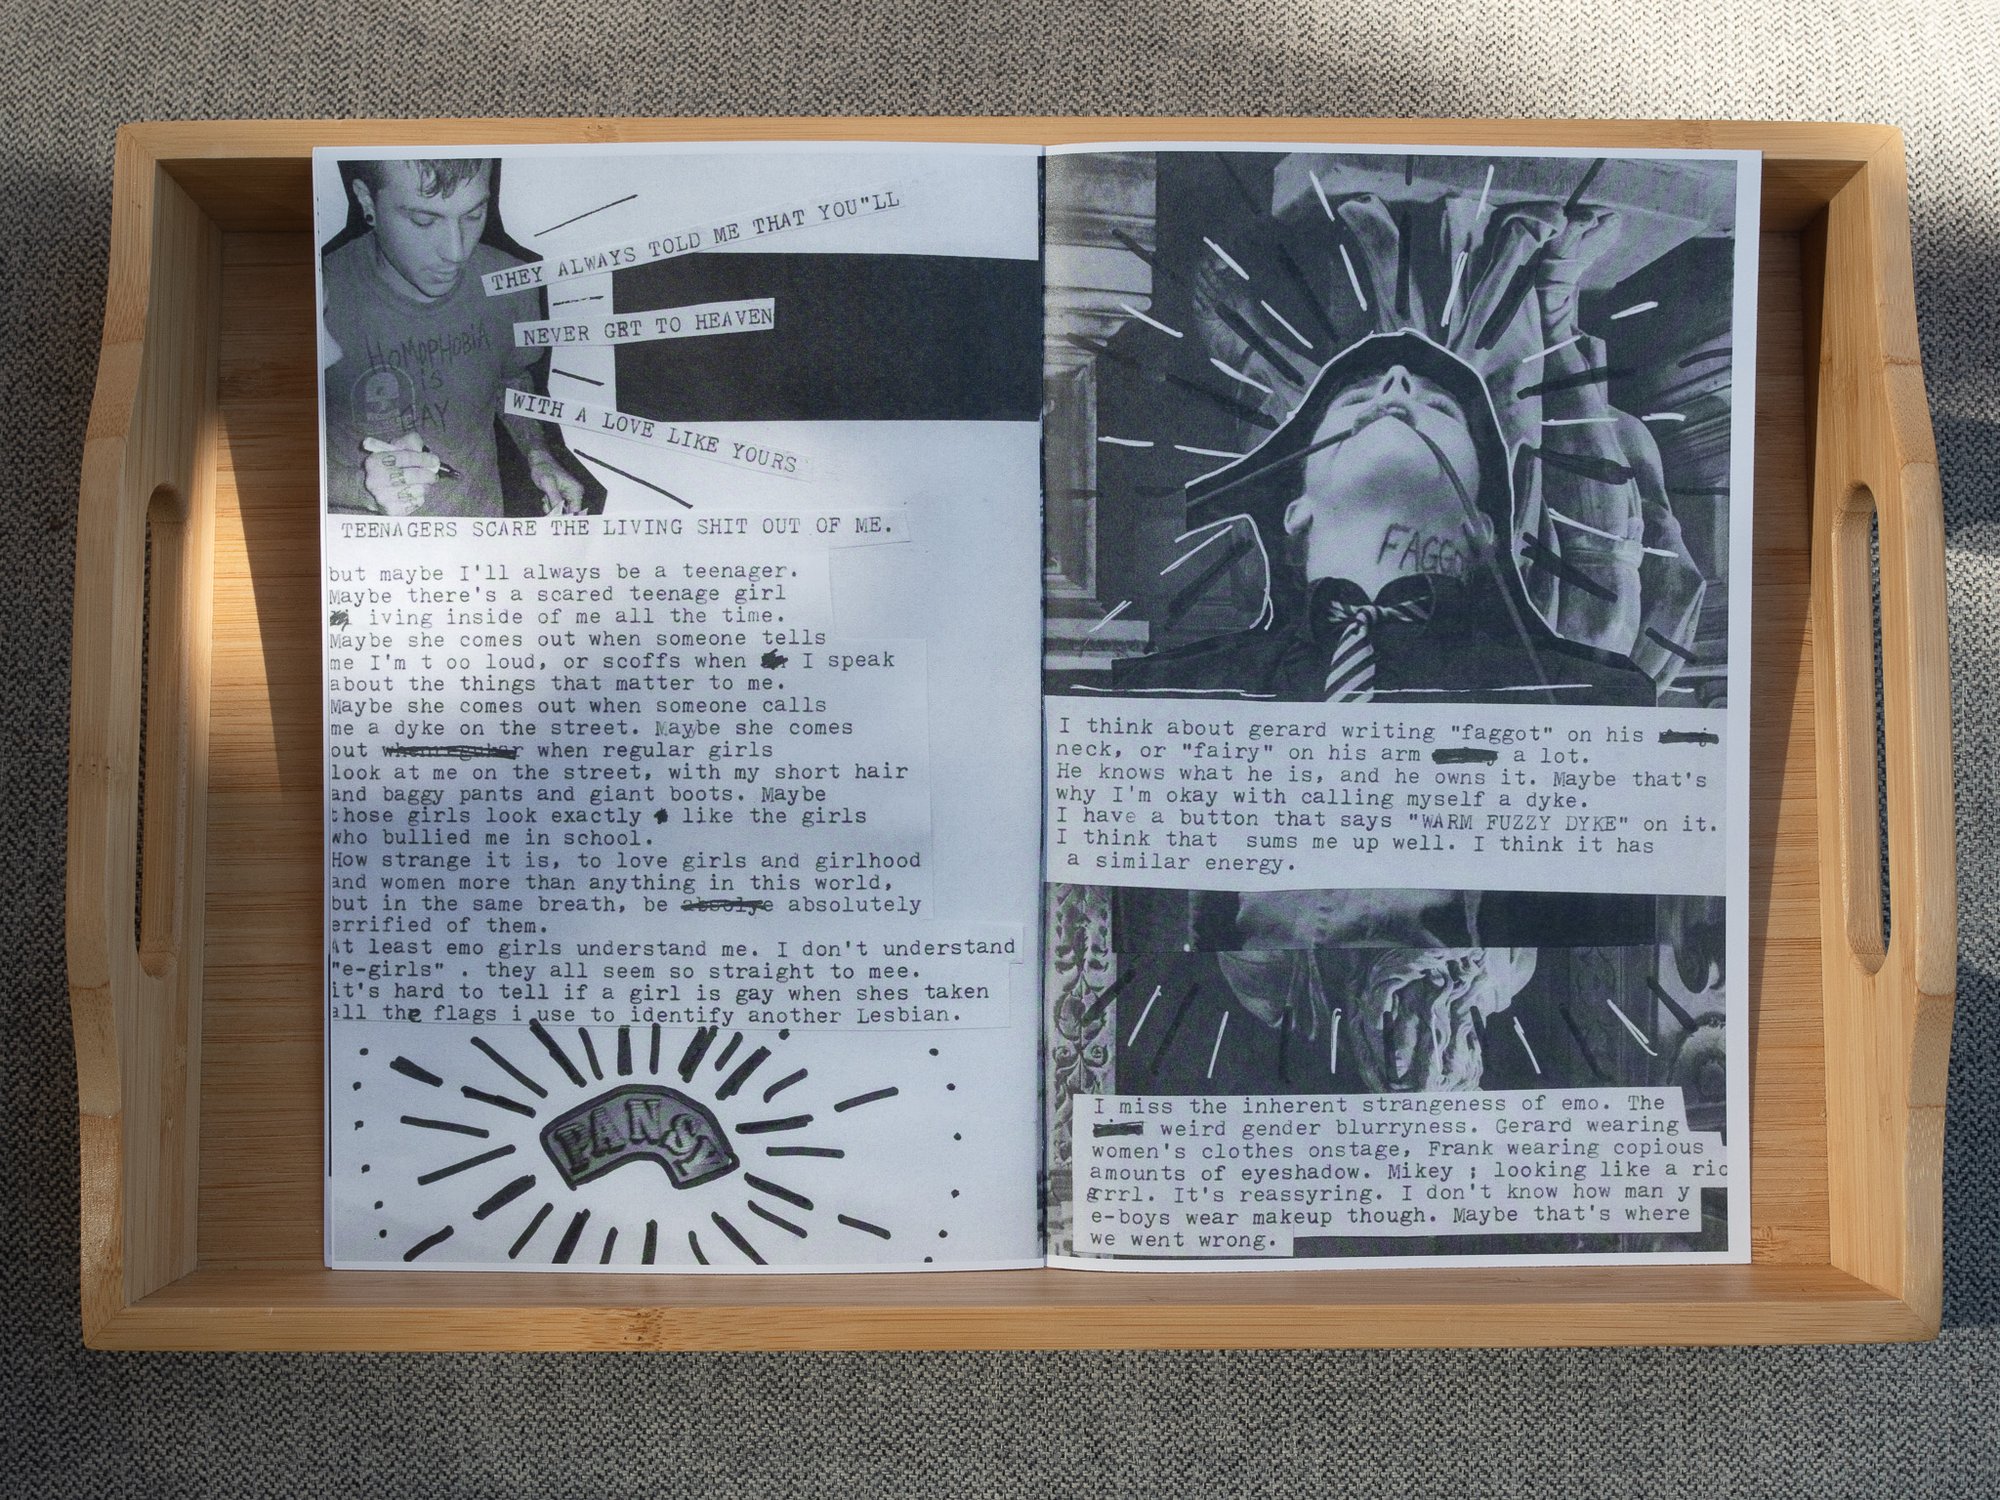 HOMOPHOBIA
IS
GAY
THEY ALWAYS TOLD ME THAT YOU"LL
NEVER GET TO HEAVEN
WITH A LOVE LIKE YOURS
TEENAGERS SCARE THE LIVING SHIT OUT OF ME.
but maybe I'll always be a teenager.
Maybe there's a scared teenage girl
iving inside of me all the time.
Maybe she comes out when someone tells
me I'm t oo loud, or scoffs when I speak
about the things that matter to me.
Maybe she comes out when someone calls
me a dyke on the street. Maybe she comes
out when regular girls
look at me on the street, with my short hair
and baggy pants and giant boots. Maybe
those girls look exactly like the girls
who bullied me in school.
How strange it is, to love girls and girlhood
and women more than anything in this world,
but in the same breath, be absolutely
errified of them.
At least emo girls understand me. I don't understand
"e-girls" . they all seem so straight to mee.
it's hard to tell if a girl is gay when shes taken
all the flags i use to identify another Lesbian.
PANSY
FAGGO
I think about gerard writing "faggot" on his
neck, or "fairy" on his arm a lot.
He knows what he is, and he owns it. Maybe that's
why I'm okay with calling myself a dyke.
I have a button that says "WARM FUZZY DYKE" on it.
I think that sums me up well. I think it has
a similar energy.
I miss the inherent strangeness of emo. The
weird gender blurryness. Gerard wearing
women's clothes onstage, Frank wearing copious
amounts of eyeshadow. Mikey ; looking like a rio
grrrl. It's reassyring. I don't know how man y
e-boys wear makeup though. Maybe that's where
we went wrong.